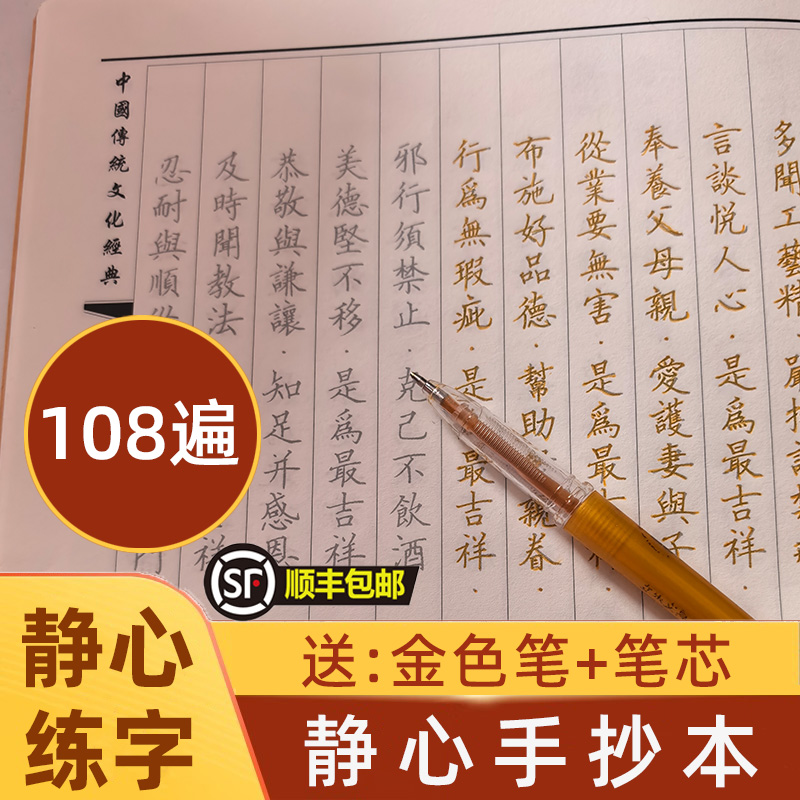 多聞工藝精·嚴持諸
言談悅人心·是爲最吉祥·
奉養父母親·愛護妻與子
從業要無害·是爲最
布施好品德·幫助親眷·
行爲無瑕疵·是最吉祥·
邪行須禁止·克己不飲酒
美德堅不移·是爲最吉祥·
恭敬與謙讓·知足并感恩
及時聞教法祥
忍耐與順
中國傳統文化經典
108遍
SF 顺丰包邮
静心
练字
送:金色笔+笔芯
静心手抄本